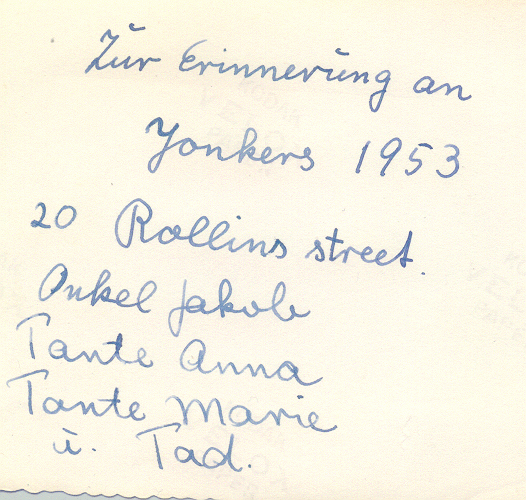 Zur Erinnerung an
Yonkers 1953
20 Rollins street.
Onkel Jakob
Tante Anna
Tante Marie
u. Tad.